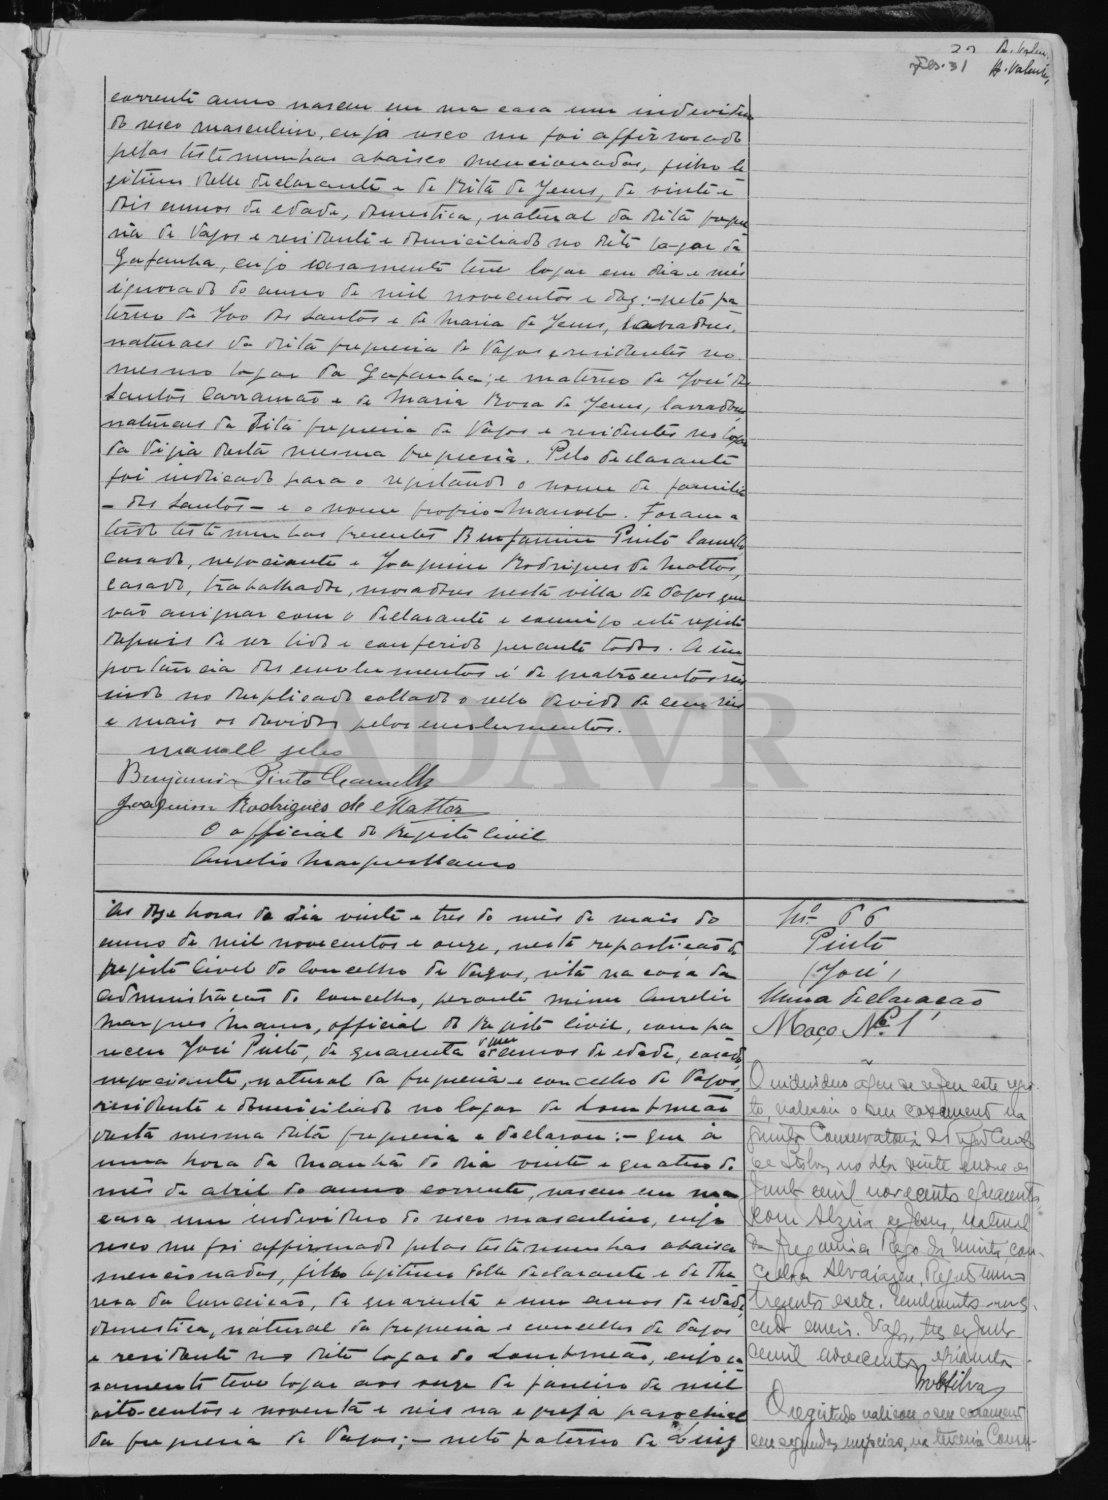 Fls. 31 A. Valente
corrente anno nasceu em sua casa um individuo
do sexo masculino, cujo sexo me foi affirmado
pelas testemunhas abaixo mencionadas, filho le
gitimo delle declarante e de Rita de Jesus, de vinte e
dois annos de edade, domestica, natural da dita fregue
sia de Vagos e residente e domiciliado no dito logar da
Gafanha, cujo casamento teve logar em dia e mês
ignorado do anno de mil novecentos e dez:-neto pa
terno de Ivo dos Santos e de Maria de Jesus, lavradores,
naturaes da dita freguesia de Vagos e residentes no
mesmo logar da Gafanha; e materno de José dos
Santos Carramão e de Maria Rosa de Jesus, lavradores
naturaes da dita freguesia de Vagos e residentes no logar
da Vigia desta mesma freguesia. Pelo declarante
foi indicado para o registando o nome de familia
- dos Santos - e o nome proprio - Manoel. Foram a
tudo testemunhas presentes Benjamim Pinto Camello,
casado, negociante e Joaquim Rodrigues de Mattos,
casado, trabalhador, moradores nesta villa de Vagos que
vão assignar com o declarante e comigo este registo
depois de ser lido e conferido perante todos. A im
portancia dos emolumentos é de quatrocentos reis
indo no duplicado collado o sello devido de cem reis
e mais os devidos pelos emolumentos.
Manoel
Benjamim Pinto Camello
Joaquim Rodrigues de Mattos
O official do Registo Civil
Aurelio Marques Mano
As doze horas do dia vinte e tres do mês de maio do
anno de mil novecentos e onze, nesta repartição do
registo civil do concelho de Vagos, sita na casa da
administração do concelho, perante mim Aurelio
Marques Mano, official do Registo Civil, compa
receu José Pinto, de quarenta e um annos de edade, casado,
negociante, natural da freguesia e concelho de Vagos,
residente e domiciliado no logar de Lombomeão
desta mesma dita freguesia e declarou:- que á
uma hora da manhã do dia vinte e quatro do
mês de abril do anno corrente, nasceu em sua
casa um individuo do sexo masculino, cujo
sexo me foi affirmado pelas testemunhas abaixo
mencionadas, filho legitimo delle declarante e de The
resa da Conceição, de quarenta e um annos de edade,
domestica, natural da freguesia e concelho de Vagos
e residente no dito logar do Lombomeão, cujo ca
samento teve logar aos onze de janeiro de mil
oito centos e noventa e seis na egreja parochial
da freguesia de Vagos;- neto paterno de Luiz
Nº 66
Pinto
(José)
Uma declaração
Maço Nº 1
O individuo a que se refere este regis-
to, realizou o seu casamento na
Conservatoria do Registo Civil
de Lisboa, no dia vinte e nove de
mil novecentos e quarenta
com Alzira de Jesus, natural
da freguesia Pego da Murta, con-
celho Alvaiazere. Registo numero
trezentos e sete.
Vagos, tres de
de mil novecentos e quarenta
O registado realizou o seu casamento
em segundas nupcias, na terceira Conser-
ADAVR